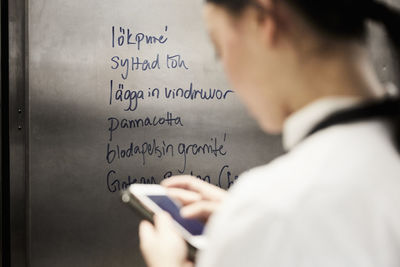 lökpuré
Syltad lök
lägga in vindruvor
pannacotta
blodapelsin granité